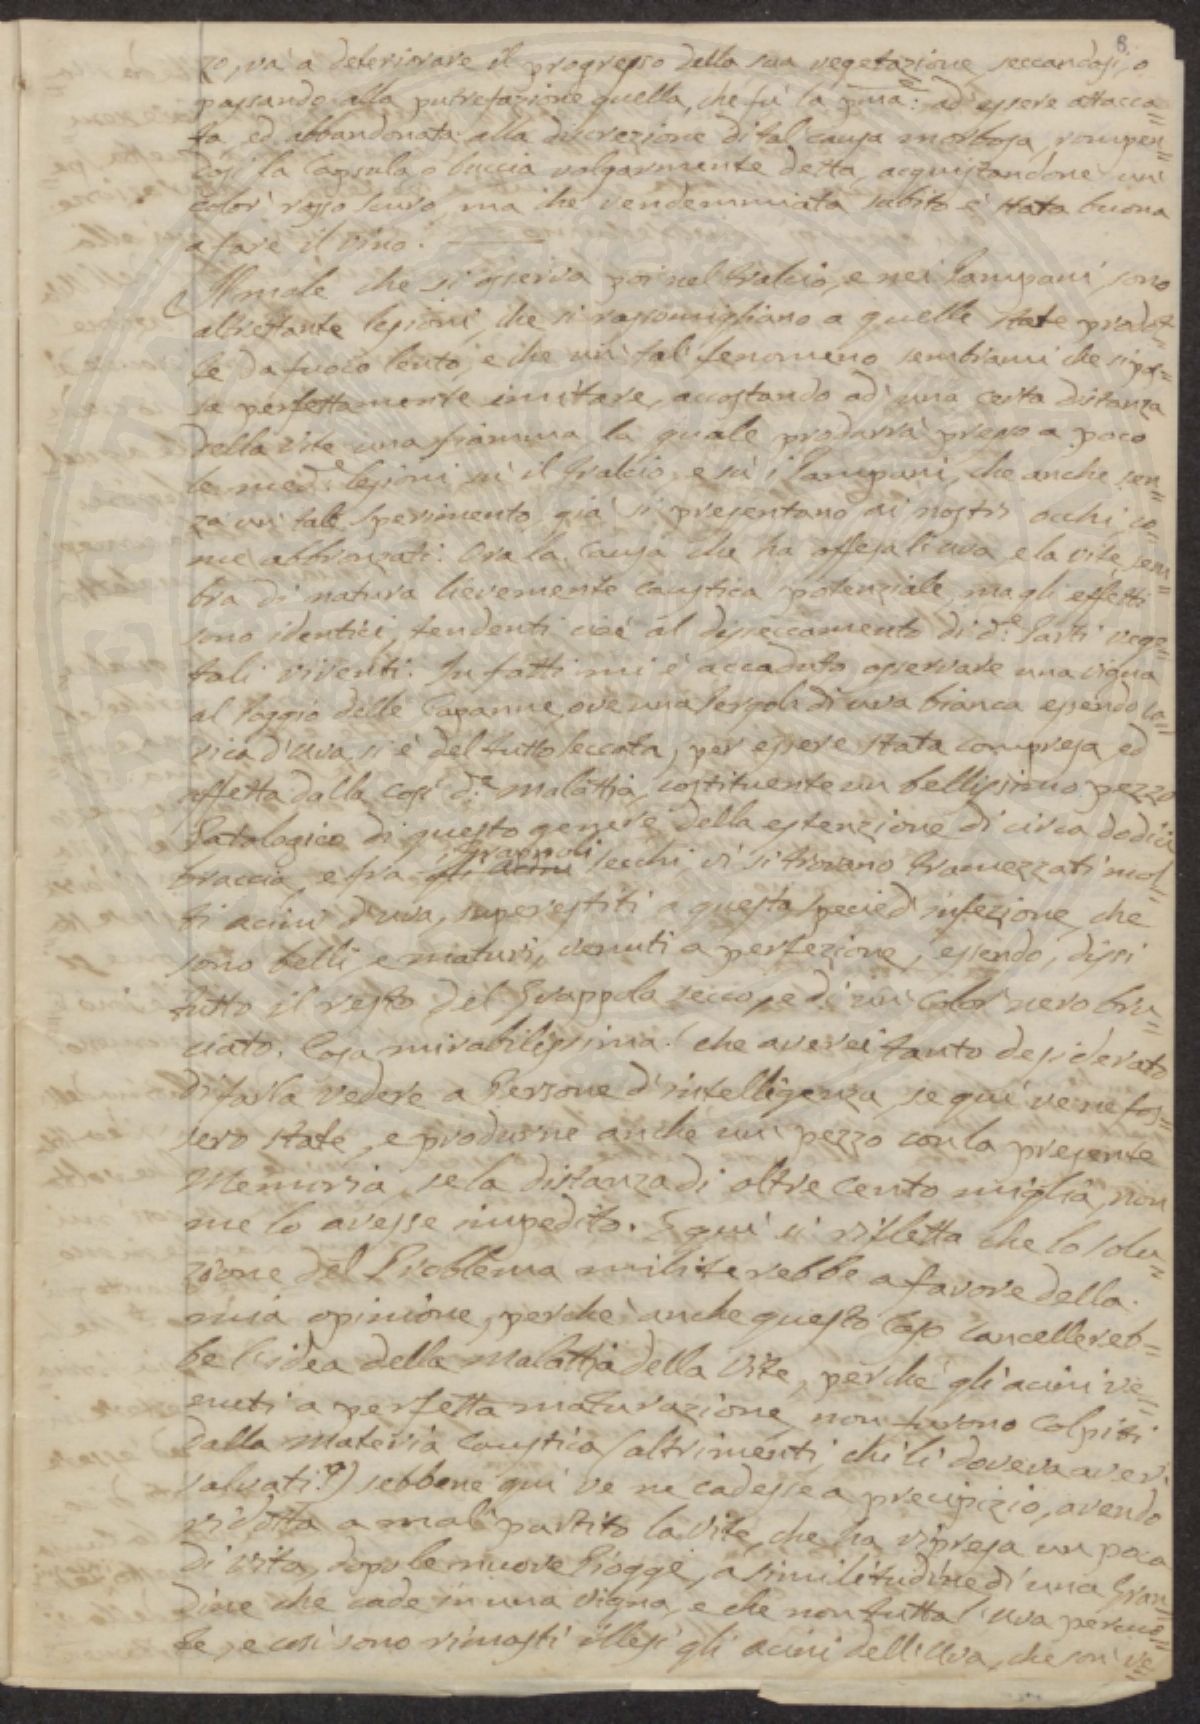 8.
zo, va' a deteriorare il progresso della sua vegetazione seccandosi, o
passando alla putrefazione quella, che fu' la pma: ad' essere attacca=
ta, ed abbandonata alla discrezione di tal causa morbosa, rompen=
dosi la Capsula, o buccia volgarmente detta, acquistandone un'
color' rosso scuro, ma che vendemmiata subito è stata buona
a fare il vino.
Il male che si osserva poi nel tralcio, e nei Pampani, sono
altrettante lesioni, che si rassomigliano a quelle state prodot=
te da fuoco lento, e che un' tal' fenomeno sembrami che si pos=
sa perfettamente imitare, accostando ad' una certa distanza
della vite una fiamma, la quale produrrà presso a poco
le med.e lesioni su' il tralcio, e su' i Pampani, che anche sen=
za un' tale sperimento già si presentano ai nostri occhi, co=
me abbronzati. Ora la Causa che ha offesa l'uva, e la vite sem=
bra di natura lievemente Caustica potenziale, ma gli effetti
sono identici, tendenti cioè al disseccamento di d.e Parti vege=
tali viventi. In fatti mi è accaduto osservare una vigna
al Poggio delle Capanne, ove una Pergola di uva bianca essendo ca=
rica d'uva, si è del tutto seccata, per essere stata compresa, ed
affetta dalla così d.a Malattia, costituente un bellissimo pezzo
Patologico di questo genere della estenzione di circa dodici
braccia, e fra gli acini i Grappoli secchi, vi si trovano tramezzati mol=
ti acini d'uva, superestiti a questa specie d'infezione, che
sono belli, e maturi, venuti a perfezione, essendo, dissi
tutto il resto del Grappolo secco, e di un' Color' nero bru=
ciato. Cosa mirabilissima! che averei tanto desiderato
di farla vedere a Persone d'intelligenza, se qui ve ne fos=
sero state, e produrne anche un' pezzo con la presente
Memoria, se la distanza di oltre cento miglia, non
me lo avesse impedito. E qui si rifletta che lo solu=
zione del Problema militerebbe a favore della
mia opinione, perchè anche questo Caso cancellereb=
be l'idea della Malattia della Vite, perchè gli acini ve=
nuti a perfetta maturazione, non furono Colpiti
dalla materia Caustica (altrimenti, chi li doveva aver'
salvati?) sebbene qui ve ne cadesse a precipizio, avendo
ridotta a mal' partito la vite, che ha ripresa un poco
di vita, dopo le nuove Piogge, a similitudine d'una Gran=
dine che cade in una vigna, e che non tutta l'uva percuo=
te, e così sono rimasti illesi gli acini dell'Uva, che son' ve=